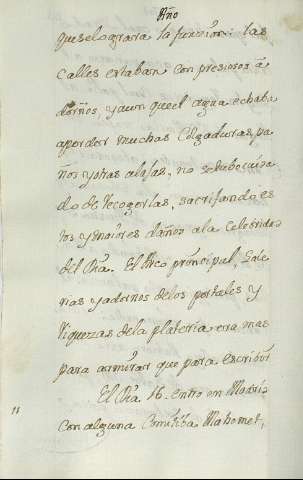 Año
que se lograra la funzion: las
calles estaban con presiosos a
dornos, y aun que el agua echaba
aperder muchas Colgaduras, pa
ños y otras alajas, no se tubo cuida
do de recogerlas, sacrifando es
tos y maiores daños a la Celebrida
del Dia. El Arco principal, Gale
rias y adornos de los portales y
riquezas de la plateria era mas
para armirar que para escribir
El Dia 16. entro en Madrid
Con alguna Comitiba Mahomet,